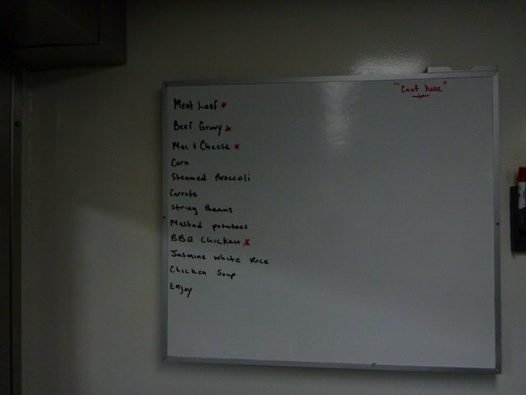 "Can't have"
Meat Loaf *
Beef Gravy *
Mac & Cheese *
Corn
Steamed Broccoli
Carrots
String Beans
Mashed potatoes
BBQ Chicken *
Jasmine White Rice
Chicken Soup
Enjoy